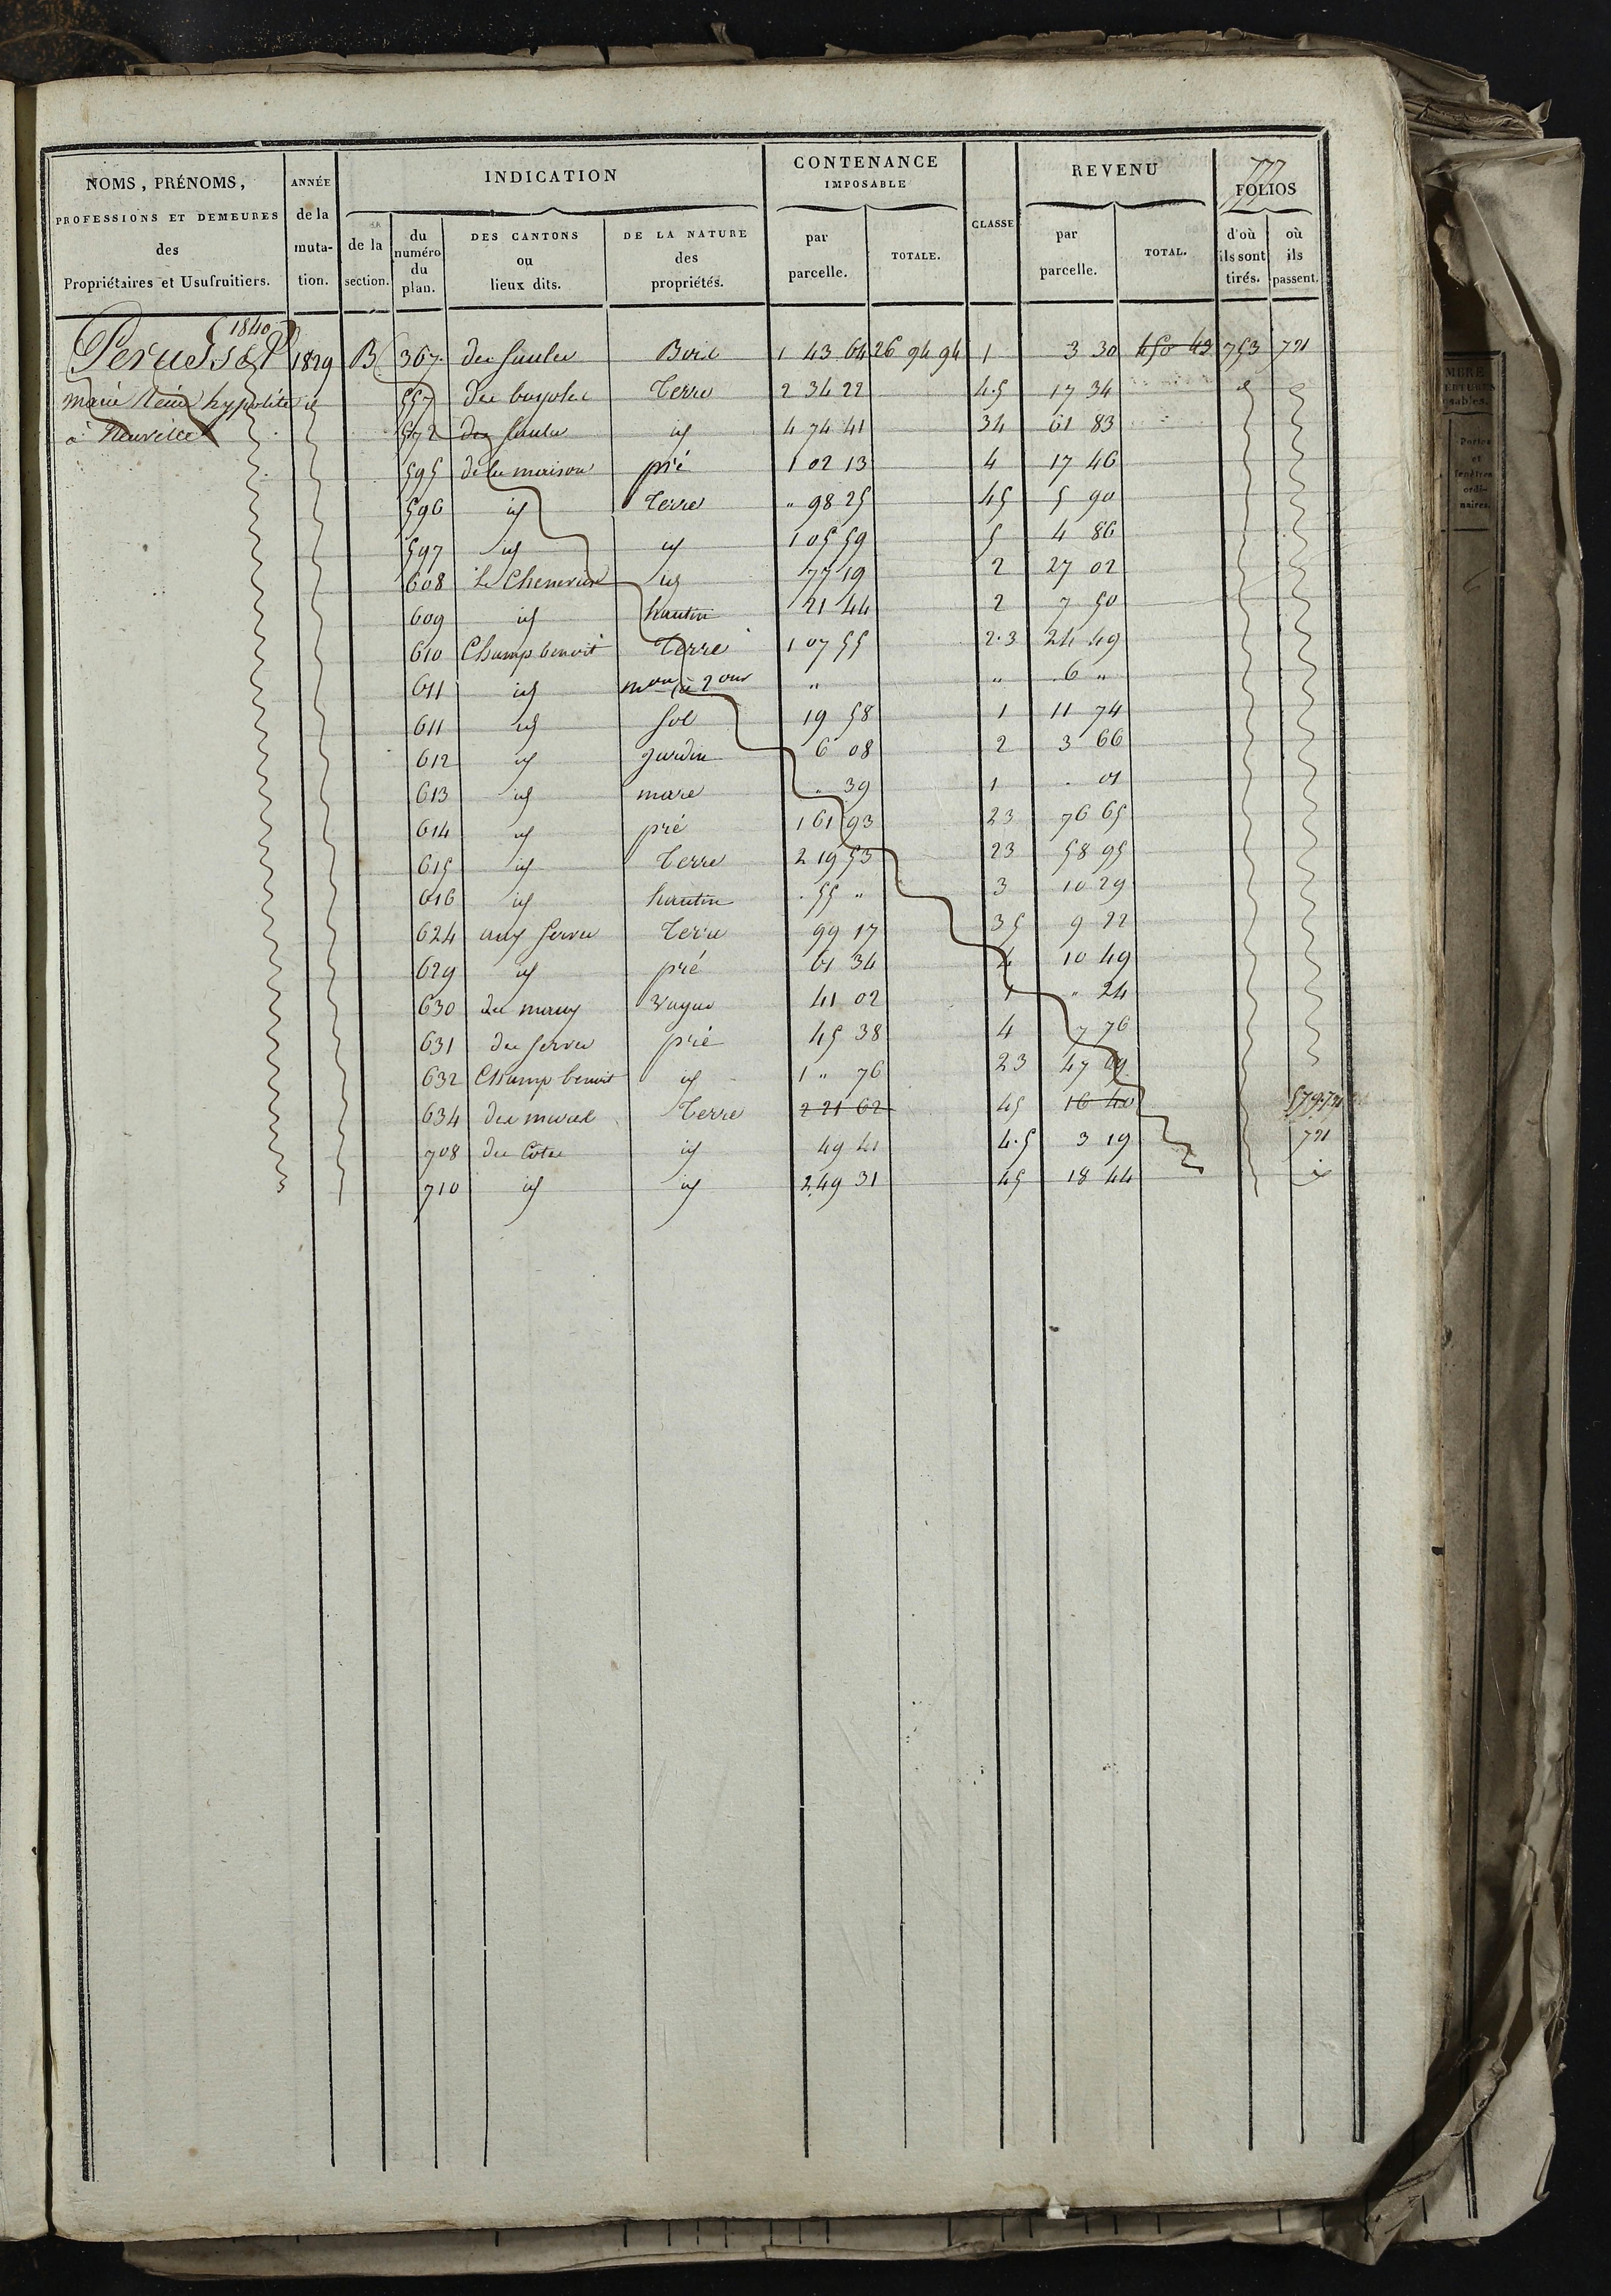 777
NOMS, PRÉNOMS, PROFESSIONS ET DEMEURES des Propriétaires et Usufruitiers.
ANNÉE de la muta-tion.
INDICATION
de la section.
du numéro du plan.
DES CANTONS ou lieux dits.
DE LA NATURE des propriétés.
CONTENANCE IMPOSABLE
par parcelle.
TOTALE.
CLASSE
REVENU
par parcelle.
TOTAL.
FOLIOS
d'où ils sont tirés.
où ils passent.
1840
Perussel 1829 B 367 des Saules Bois 1 43 64 26 94 94 1 3 30 450 43 753 721
marie hypolite id 557 des Terre 2 34 22 4.5 17 34
à Neuville 572 des Saules id 4 74 41 34 61 83
595 de la maison pré 1 02 13 4 17 46
596 id Terre " 98 25 45 5 90
597 id id 1 05 59 5 4 86
608 id 77 19 2 27 02
609 id hautin 21 44 2 7 50
610 Champ benoit Terre 1 07 55 2.3 24 49
611 id mon à 2 ouv " " 6 "
611 id Sol 19 58 1 11 74
612 id jardin 6 08 2 3 66
613 id mare " 39 1 . 01
614 id pré 1 61 93 23 76 65
615 id Terre 2 19 53 23 58 95
616 id hautin . 55 " 3 10 29
624 aux Serves Terre 99 17 35 9 22
629 id pré 61 34 4 10 49
630 des vague 41 02 1 " 24
631 des Serves pré 45 38 4 7 76
632 Champ benoit id 1 " 76 23 47 69
634 des Terre 2 21 62 45 16 40 579.721
708 des Côtes id 49 41 4.5 3 19 721
710 id id 2 49 31 45 18 44 id
Portes et fenêtres ordi-naires.